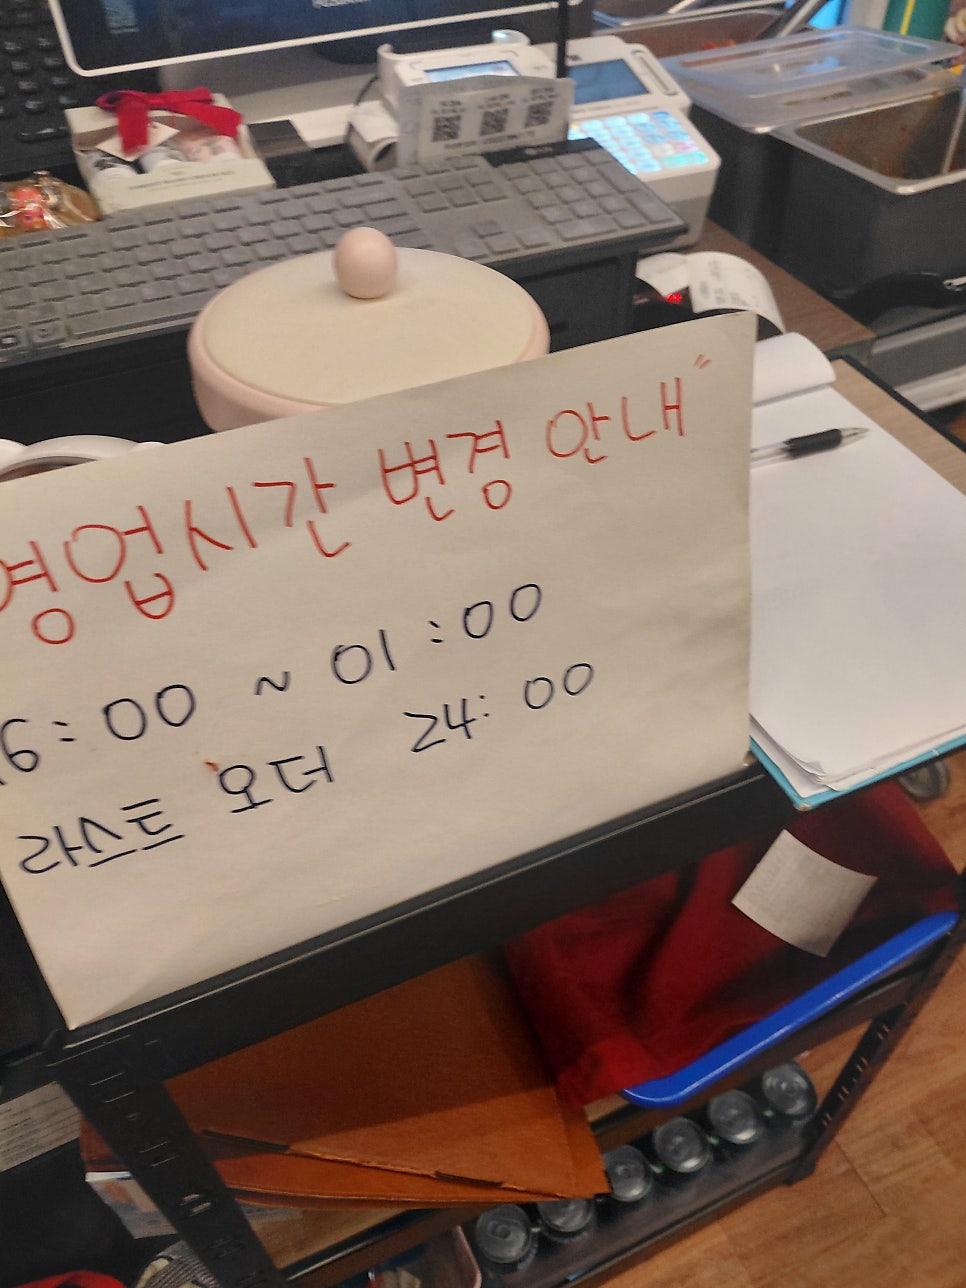 영업시간 변경 안내"
16:00 ~ 01:00
라스트 오더 24:00